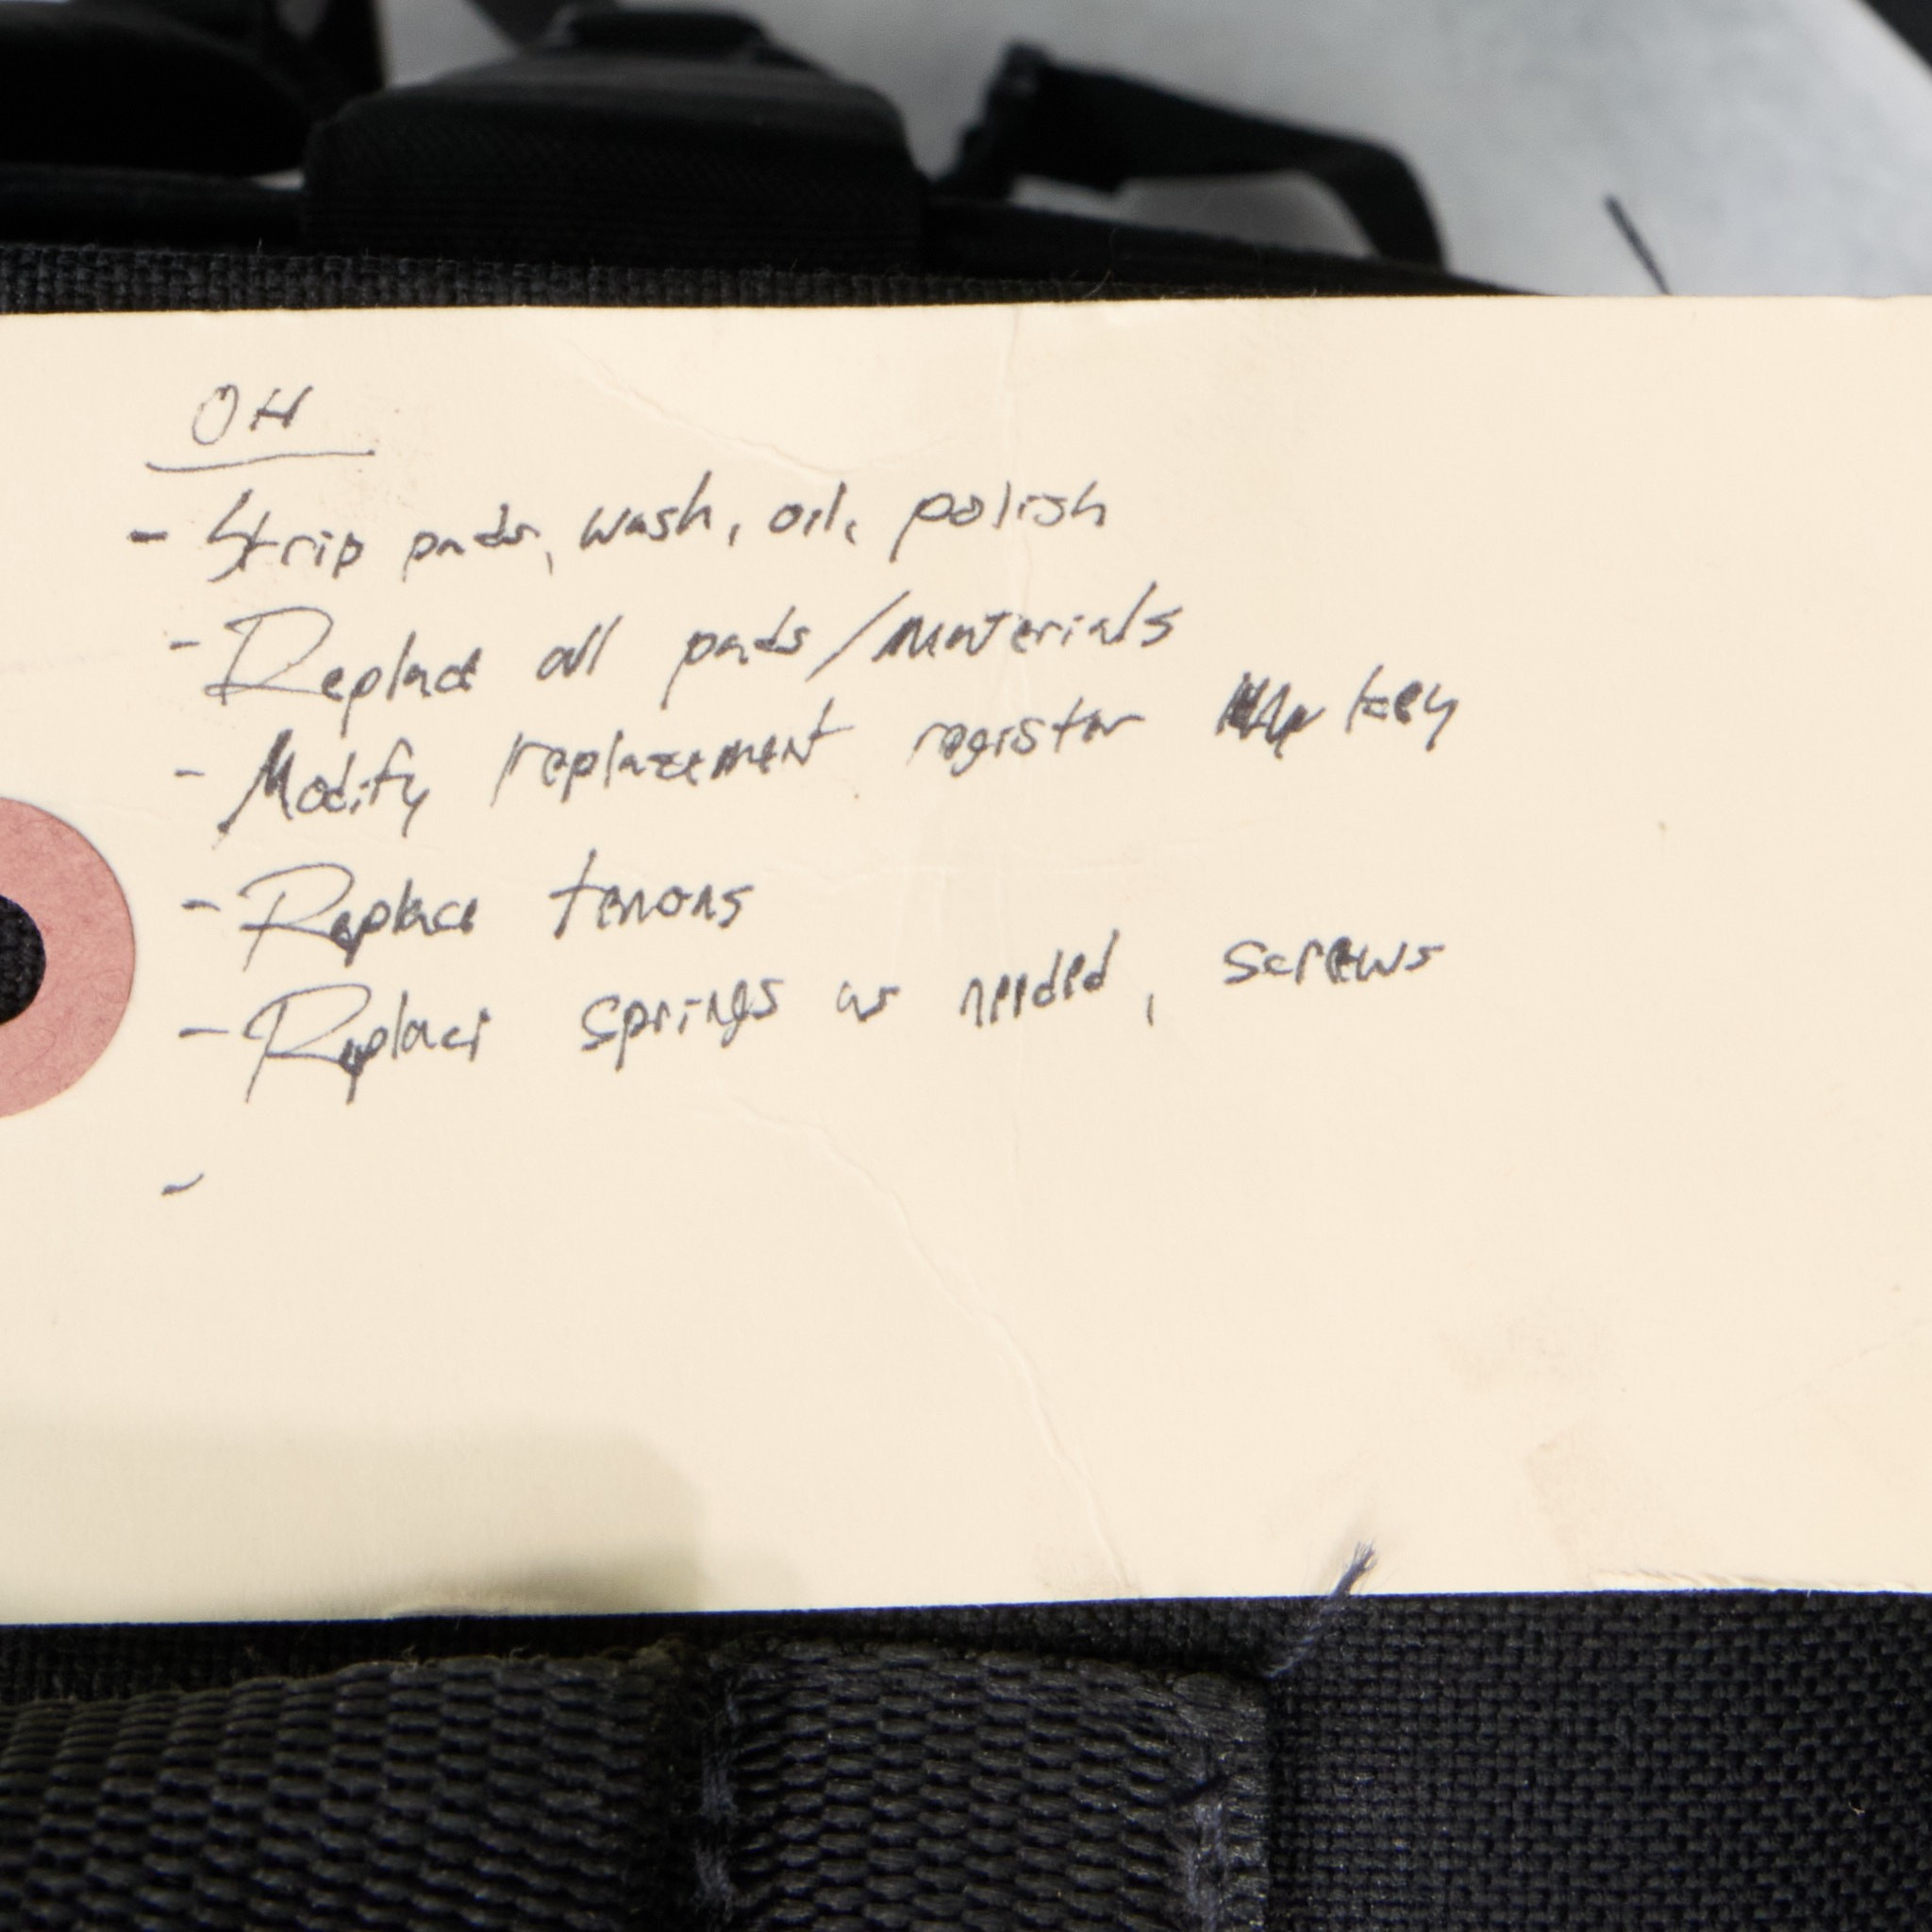 OH
- Strip pads, wash, oil, polish
- Replace all pads/materials
- Modify replacement register key
- Replace tenons
- Replace springs as needed, screws
-